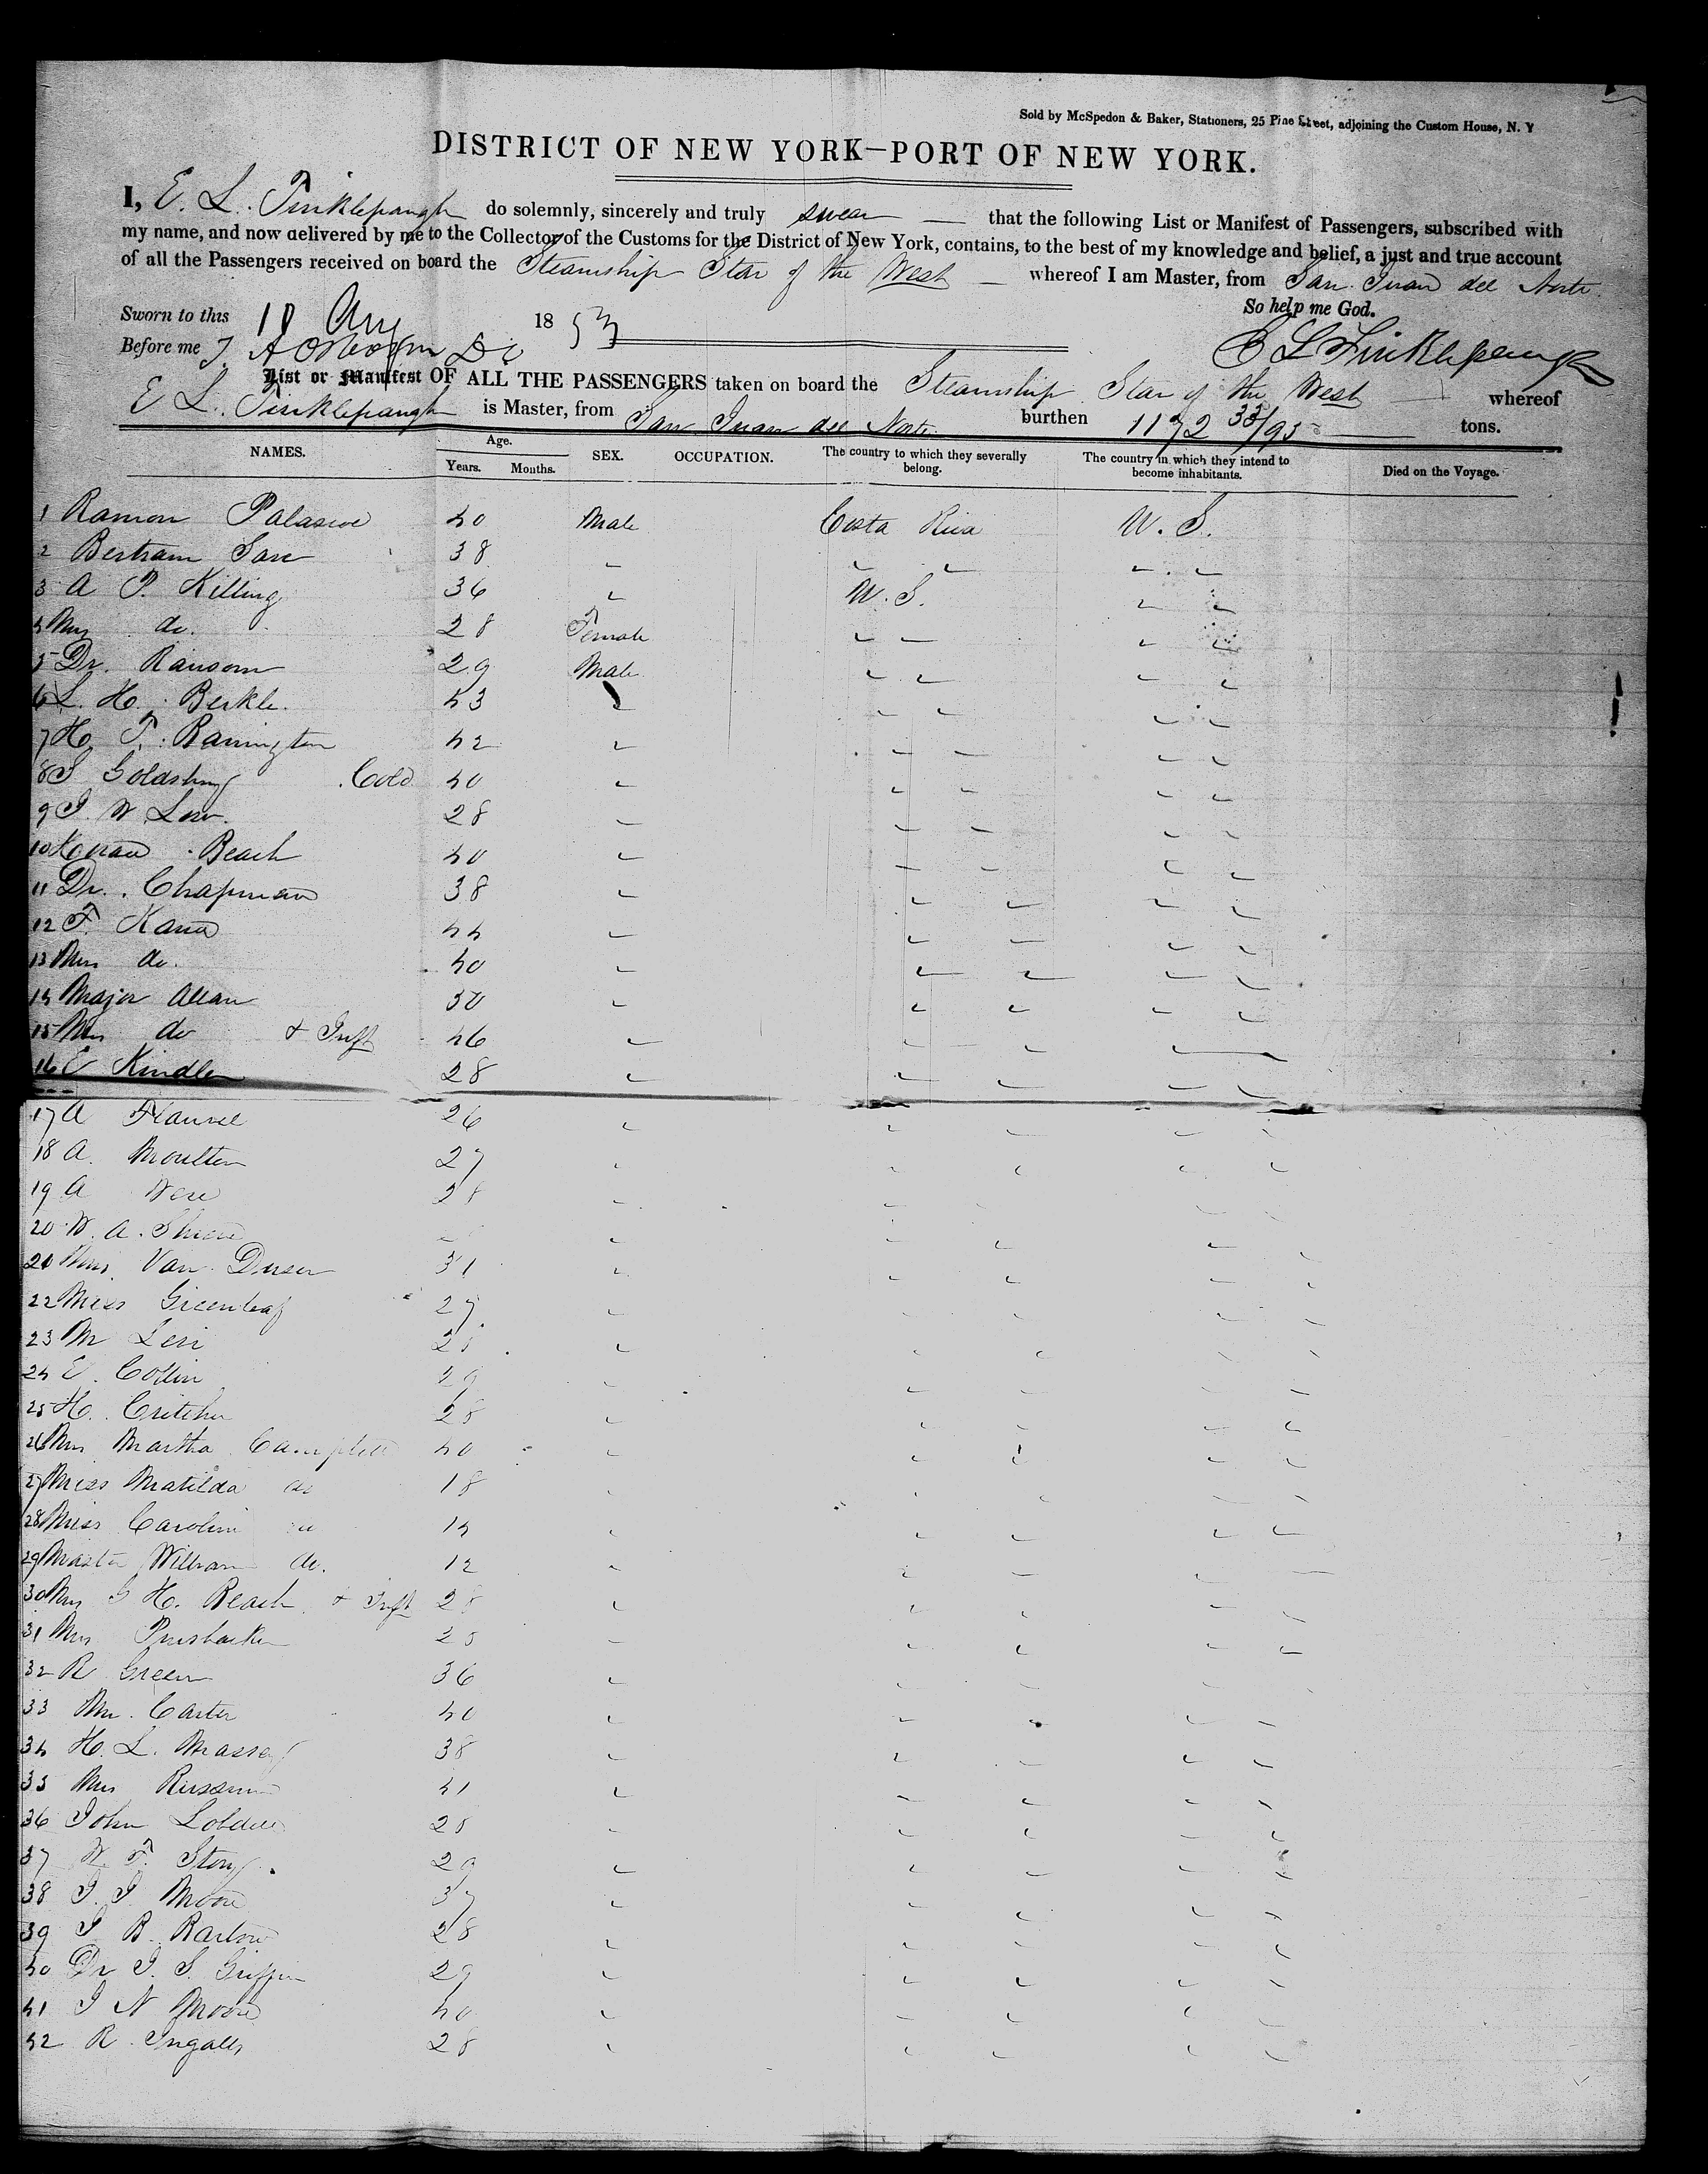 Sold by McSpedon & Baker, Stationers, 25 Pine Street, adjoining the Custom House, N. Y
DISTRICT OF NEW YORK—PORT OF NEW YORK.
I, E. L. Tinklepaugh do solemnly, sincerely and truly swear — that the following List or Manifest of Passengers, subscribed with
my name, and now delivered by me to the Collector of the Customs for the District of New York, contains, to the best of my knowledge and belief, a just and true account
of all the Passengers received on board the Steamship Star of the West — whereof I am Master, from San Juan del Norte
So help me God.
Sworn to this 10 Aug 1853
Before me
E L Tinklepaugh
List or Manifest OF ALL THE PASSENGERS taken on board the Steamship Star of the West — whereof
E L. Tinklepaugh is Master, from San Juan del Norte burthen 1172 33/95 — tons.
NAMES. Age. Years. Months. SEX. OCCUPATION. The country to which they severally belong. The country in which they intend to become inhabitants. Died on the Voyage.
1 Ramon 40 Male Costa Rica U. S.
2 Bertram 38
3 A P. Killing 36 U. S.
4 Mrs do. 28 Female
5 Dr. Ransom 29 Male
6 L. H. Berkle. 43
7 H. T. Rannington 42
8 S Cold 40
9 J. W Low. 28
10 Beach 40
11 Dr. Chapman 38
12 F. Kana 44
13 Mrs do. 40
14 Major Allan 50
15 Mrs do & Inft 46
16 E Kindler 28
17 A 26
18 A. Moulton 27
19 A 28
20 W. A.
21 Mrs Van Duser 31
22 Miss Greenleaf 27
23 M Levi 28
24 E. Collin 29
25 H. Critcher 28
26 Mrs Martha Campbell 40
27 Miss Matilda do 18
28 Miss Caroline do 14
29 Master William do. 12
30 Mrs G H. Beach & Inft 28
31 Mrs 28
32 R Green 36
33 Mr. Carter 40
34 H. L. Massey 38
35 Mrs 41
36 John Lobdell 28
37 W. F. Story 29
38 J. J Moore 37
39 J B. Barlow 28
40 Dr J. S. Griffin 29
41 J N Moore 40
42 R. Ingalls 28